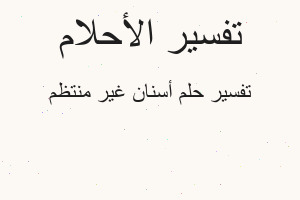 تفسير الأحلام
تفسير حلم أسنان غير منتظم